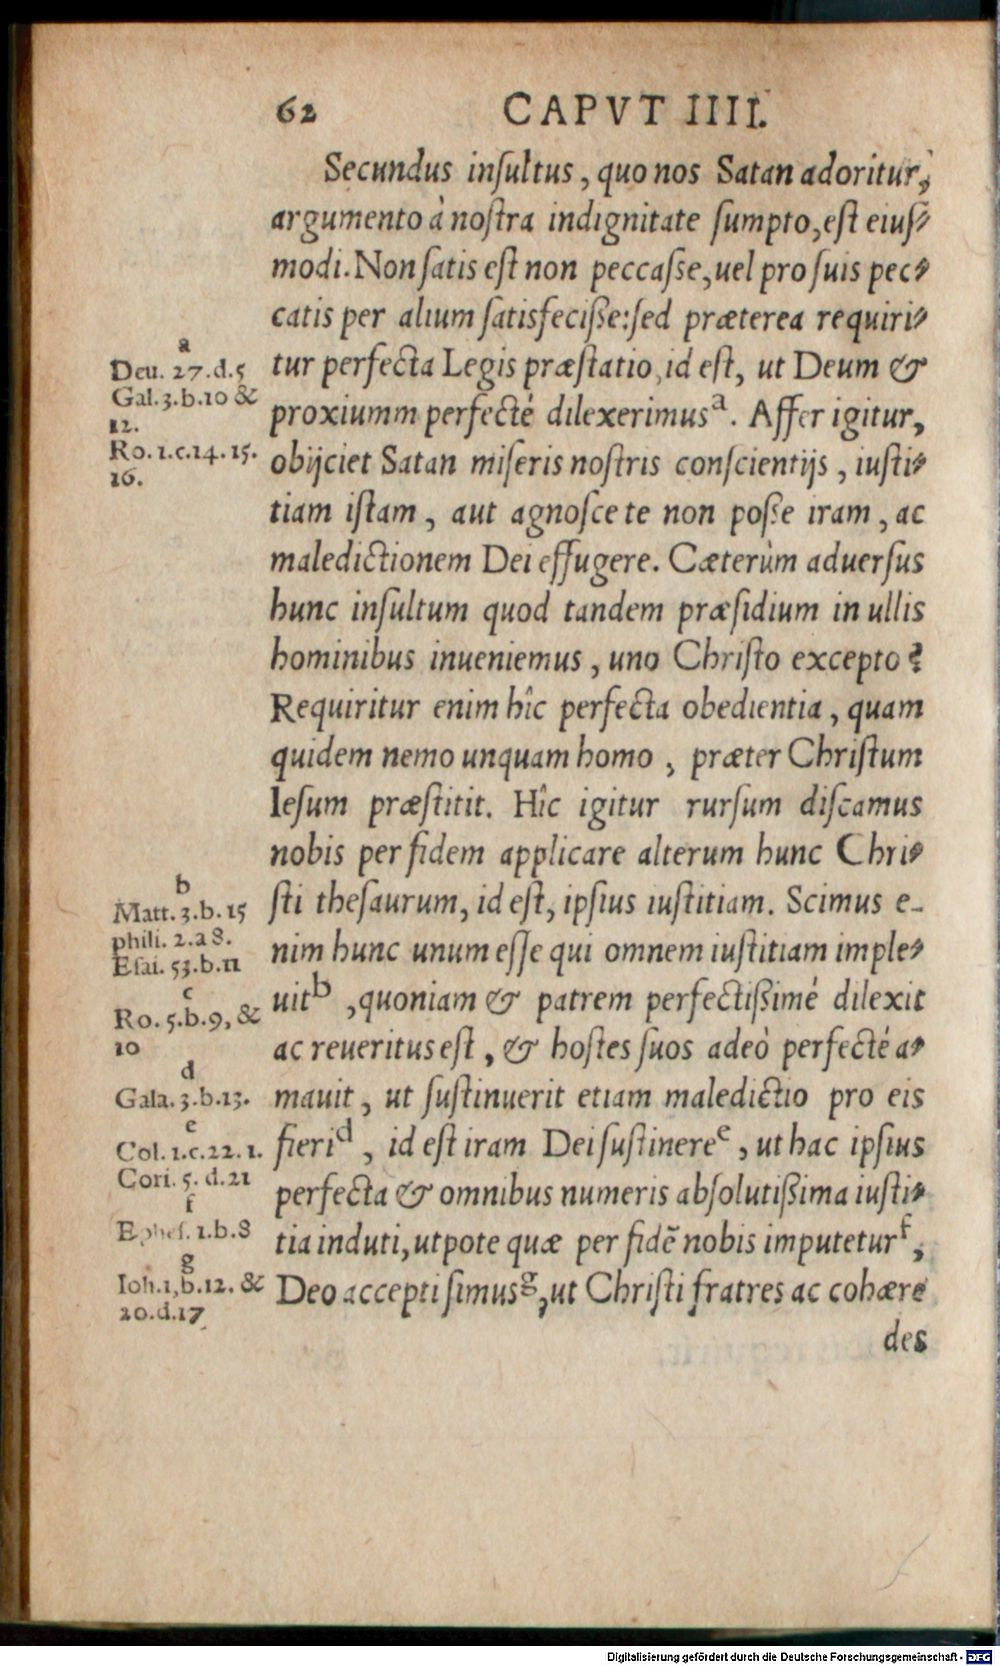 62 CAPVT IIII.
Secundus inſultus, quo nos Satan adoritur,
argumento à noſtra indignitate ſumpto, eſt eiuſ⸗
modi. Non ſatis eſt non peccaſſe, uel pro ſuis pec⸗
catis per alium ſatisfeciſſe: ſed præterea requiri⸗
tur perfecta Legis præſtatio, id eſt, ut Deum &
proxiumm perfecté dilexerimus a. Affer igitur,
obijciet Satan miſeris noſtris conſcientijs, iuſti⸗
tiam iſtam, aut agnoſce te non poſſe iram, ac
maledictionem Dei effugere. Cæterùm aduerſus
hunc inſultum quod tandem præſidium in ullis
hominibus inueniemus, uno Chriſto excepto?
Requiritur enim hîc perfecta obedientia, quam
quidem nemo unquam homo, præter Chriſtum
Ieſum præſtitit. Hîc igitur rurſum diſcamus
nobis per fidem applicare alterum hunc Chri⸗
ſti theſaurum, id eſt, ipſius iuſtitiam. Scimus e-
nim hunc unum eſſe qui omnem iuſtitiam imple⸗
uit b, quoniam & patrem perfectiſſimé dilexit
ac reueritus eſt, & hoſtes ſuos adeò perfecté a⸗
mauit, ut ſuſtinuerit etiam maledictio pro eis
fieri d, id eſt iram Dei ſuſtinere e, ut hac ipſius
perfecta & omnibus numeris abſolutiſſima iuſti⸗
tia induti, utpote quæ per fidẽ nobis imputetur f,
Deo accepti ſimus g, ut Chriſti fratres ac cohære
des
a
Deu. 27.d.5
Gal. 3.b.10 &
12.
Ro. 1.c.14. 15.
16.
b
Matt. 3.b. 15
phili. 2.a 8.
Eſai. 53.b.11
c
Ro. 5.b.9, &
10
d
Gala. 3.b.13.
e
Col. 1.c.22. 1.
Cori. 5. d.21
f
Epheſ. 1.b.8
g
Ioh.1,b.12. &
20.d.17
Digitalisierung gefördert durch die Deutsche Forschungsgemeinschaft - DFG